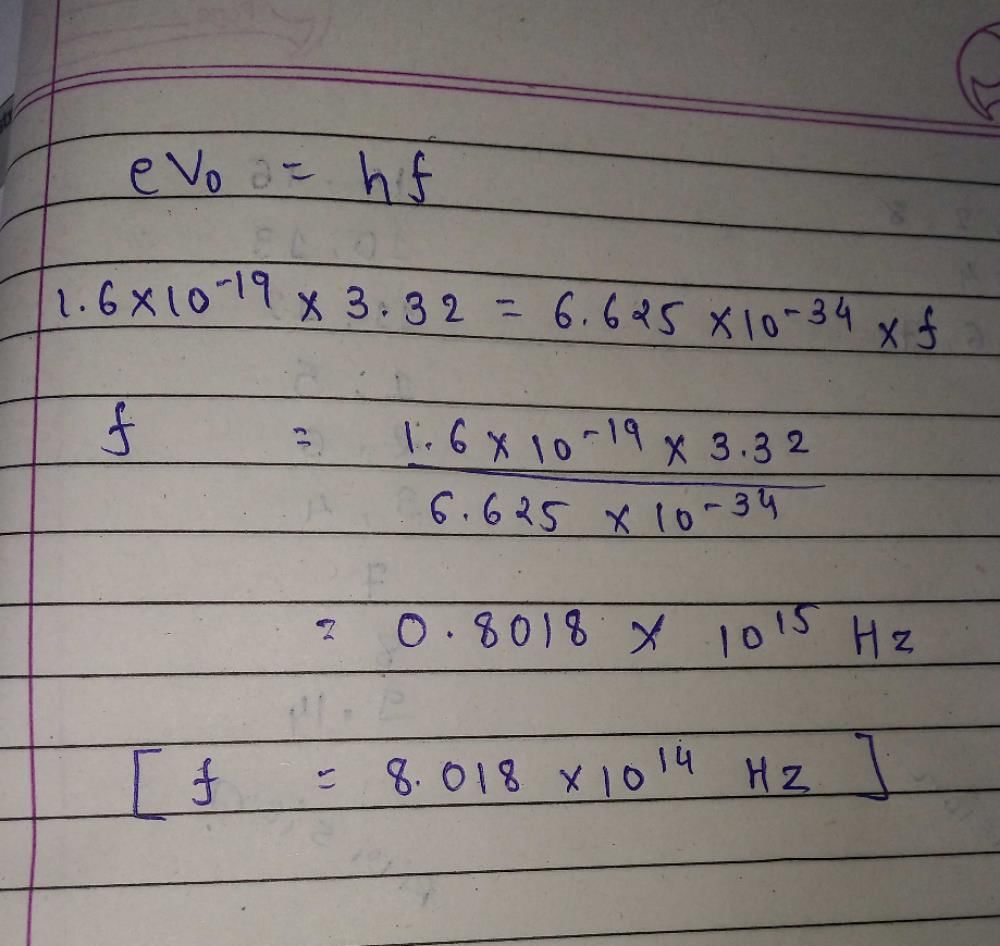 eV₀ = hf
1.6×10⁻¹⁹ × 3.32 = 6.625 ×10⁻³⁴ × f
f = 1.6 × 10⁻¹⁹ × 3.32
6.625 × 10⁻³⁴
= 0.8018 × 10¹⁵ Hz
[ f = 8.018 ×10¹⁴ Hz ]